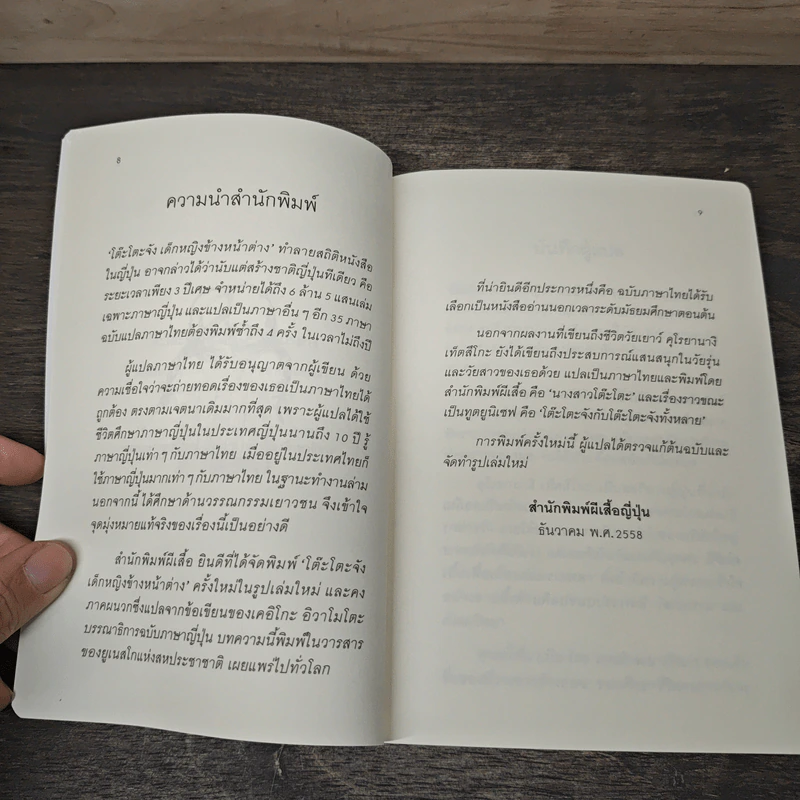 8
ความนำสำนักพิมพ์
‘โต๊ะโตะจัง เด็กหญิงข้างหน้าต่าง’ ทำลายสถิติหนังสือ
ในญี่ปุ่น อาจกล่าวได้ว่านับแต่สร้างชาติญี่ปุ่นทีเดียว คือ
ระยะเวลาเพียง 3 ปีเศษ จำหน่ายได้ถึง 6 ล้าน 5 แสนเล่ม
เฉพาะภาษาญี่ปุ่น และแปลเป็นภาษาอื่น ๆ อีก 35 ภาษา
ฉบับแปลภาษาไทยต้องพิมพ์ซ้ำถึง 4 ครั้ง ในเวลาไม่ถึงปี
ผู้แปลภาษาไทย ได้รับอนุญาตจากผู้เขียน ด้วย
ความเชื่อใจว่าจะถ่ายทอดเรื่องของเธอเป็นภาษาไทยได้
ถูกต้อง ตรงตามเจตนาเดิมมากที่สุด เพราะผู้แปลได้ใช้
ชีวิตศึกษาภาษาญี่ปุ่นในประเทศญี่ปุ่นนานถึง 10 ปี รู้
ภาษาญี่ปุ่นเท่า ๆ กับภาษาไทย เมื่ออยู่ในประเทศไทยก็
ใช้ภาษาญี่ปุ่นมากเท่า ๆ กับภาษาไทย ในฐานะทำงานล่าม
นอกจากนี้ ได้ศึกษาด้านวรรณกรรมเยาวชน จึงเข้าใจ
จุดมุ่งหมายแท้จริงของเรื่องนี้เป็นอย่างดี
สำนักพิมพ์ผีเสื้อ ยินดีที่ได้จัดพิมพ์ ‘โต๊ะโตะจัง
เด็กหญิงข้างหน้าต่าง’ ครั้งใหม่ในรูปเล่มใหม่ และคง
ภาคผนวกซึ่งแปลจากข้อเขียนของเคอิโกะ อิวาโมโตะ
บรรณาธิการฉบับภาษาญี่ปุ่น บทความนี้พิมพ์ในวารสาร
ของยูเนสโกแห่งสหประชาชาติ เผยแพร่ไปทั่วโลก
9
ที่น่ายินดีอีกประการหนึ่งคือ ฉบับภาษาไทยได้รับ
เลือกเป็นหนังสืออ่านนอกเวลาระดับมัธยมศึกษาตอนต้น
นอกจากผลงานที่เขียนถึงชีวิตวัยเยาว์ คุโรยานางิ
เท็ตสึโกะ ยังได้เขียนถึงประสบการณ์แสนสนุกในวัยรุ่น
และวัยสาวของเธอด้วย แปลเป็นภาษาไทยและพิมพ์โดย
สำนักพิมพ์ผีเสื้อ คือ ‘นางสาวโต๊ะโตะ’ และเรื่องราวขณะ
เป็นทูตยูนิเซฟ คือ ‘โต๊ะโตะจังกับโต๊ะโตะจังทั้งหลาย’
การพิมพ์ครั้งใหม่นี้ ผู้แปลได้ตรวจแก้ต้นฉบับและ
จัดทำรูปเล่มใหม่
สำนักพิมพ์ผีเสื้อญี่ปุ่น
ธันวาคม พ.ศ.2558